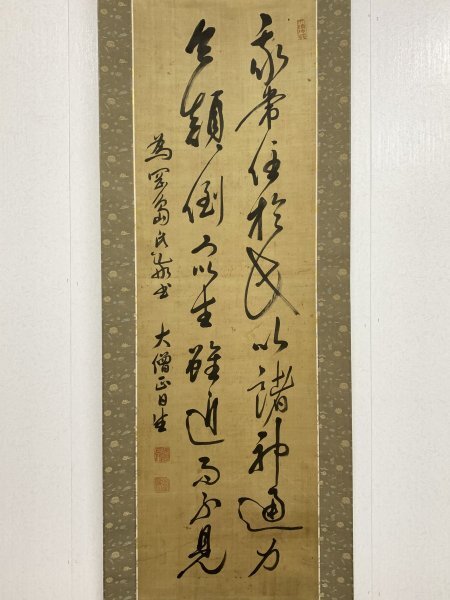 我常住於此以諸神通力
令顛倒衆生雖近而不見
為岡島氏書 大僧正日生